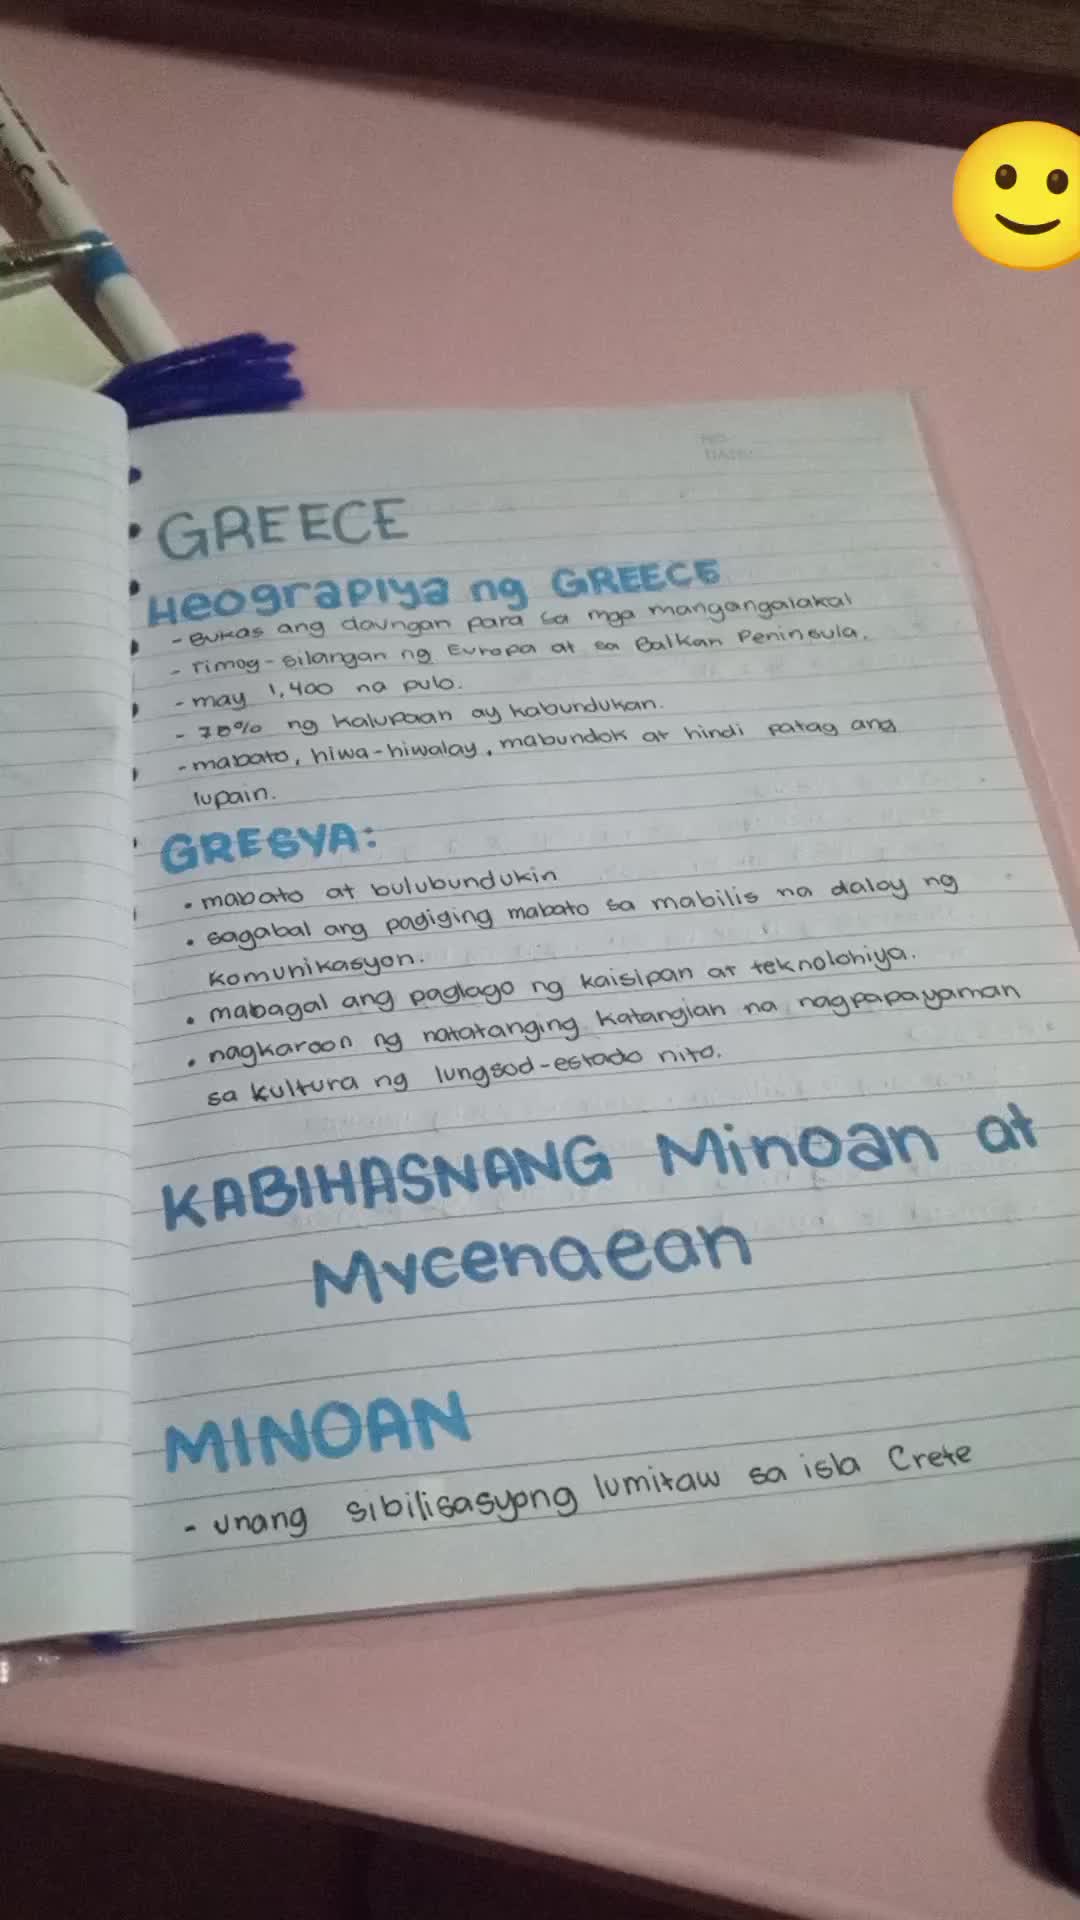 GREECE
Heograpiya ng GREECE
- Bukas ang daungan para sa mga mangangalakal
- Timog-silangan ng Europa at sa Balkan Peninsula.
- may 1,400 na pulo.
- 70% ng kalupaan ay kabundukan.
- mabato, hiwa-hiwalay, mabundok at hindi patag ang
lupain.
GRESYA:
• mabato at bulubundukin
• sagabal ang pagiging mabato sa mabilis na daloy ng
komunikasyon.
• mabagal ang paglago ng kaisipan at teknolohiya.
• nagkaroon ng natatanging katangian na nagpapayaman
sa kultura ng lungsod-estado nito.
KABIHASNANG Minoan at
Mycenaean
MINOAN
- unang sibilisasyong lumitaw sa isla Crete